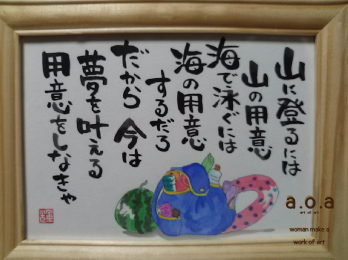 山に登るには
山の用意
海で泳ぐには
海の用意
するだろ
だから 今は
夢を叶える
用意をしなきゃ
a.o.a
art of art
woman make a
work of art